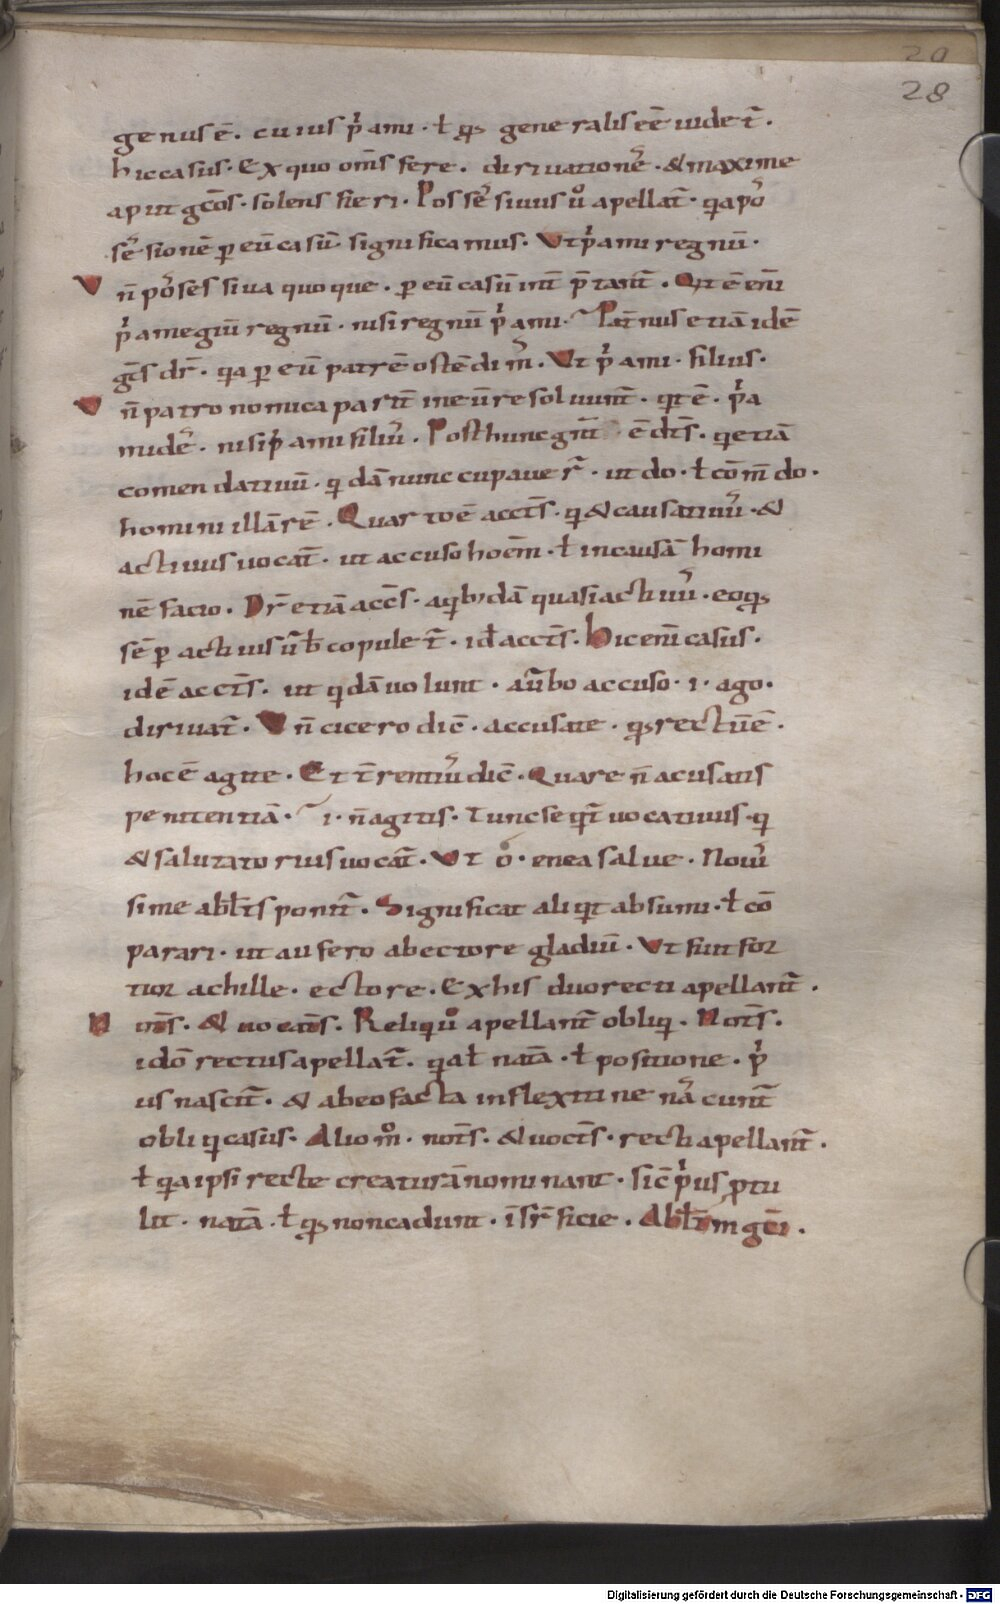 28
genus ē. cuius p̍ami · ł qs generalis eē uidet̄.
hic casus · Ex quo om̄s fere. diriuationeˢ · & maxime
aput gcōs · solens fieri · Posseˢsiuus u̽ apellat̄ · qa poˢ
seˢsionē p eū casū significamus. Vt p̍ami regnū ·
V n̄ poˢsessiua quoque · p eū casū int̄ p̄tant̄ · Qt ē eni̅
p̍amegiū regnū · nisi regnū p̍ami · Pat̄nus etiā idē
gt̄s dr̄ · qa p eū patrē ostēdim̉ · Ut p̍ami · filius ·
V n̄ patronomica part̄ in eū resoluunt̄ · qt ē · p̍a
mideˢ · nisi p̍ami filiuˢ · Post hunc gnt̄ ē dt̄s · q etiā
comendatiuū · q dā nunccupauer̄ · ut do · ł cōm̄do ·
homini illā rē · Quarto ē acct̄s · q & causatiuuˢ · &
actiuus uocat̄ · ut accuso hoēm · ł in causā homi
nē facio · Dr̄ etiā acc̄s · a qibdā quasi actiuuˢ · eo qs
sēp actiuis ūb copulet̄ · id acct̄s · Hic eni̅ casus ·
idē acct̄s · ut q dā uolunt · a ūbo accuso · i · ago ·
diriuat̄ · V n̄ cicero dic̄ · accusate · qs rectū ē ·
hoc ē agite · Et t̄rentiuˢ dic̄ · Quare n̄ acusatis
penitentiā · i · n̄ agitis · Tunc seqt̄ uocatiuus · q
& salutatorius uocat̄ · Vt ó · enea salue · Nouiˢ
sime abłt̄s ponit̄ · Significat aliqt absumi · ł cō
parari · ut aufero ab ectore gladiū · Vt fuit for
tior achille · ectore · Ex his duo recti apellant̄ ·
N nt̄s · & uocat̄s · Reliqu̽ apellant̄ obliq · Not̄s ·
idō rectus apellat̄ · qa ł natā · ł positione · p̍
us nascit̄ · & ab eo facta inflexiine naˢcunt̄
obliqi casus · Alio m̽ · not̄s · & uoct̄s · recti apellant̄ ·
ł qa ipsi recte creaturā nominant · sic̄ p̍us ptu
lit · natā · ł qs non cadunt · ī sr̄ficie · Abłt̄m gci̅ ·
Digitalisierung gefördert durch die Deutsche Forschungsgemeinschaft · DFG